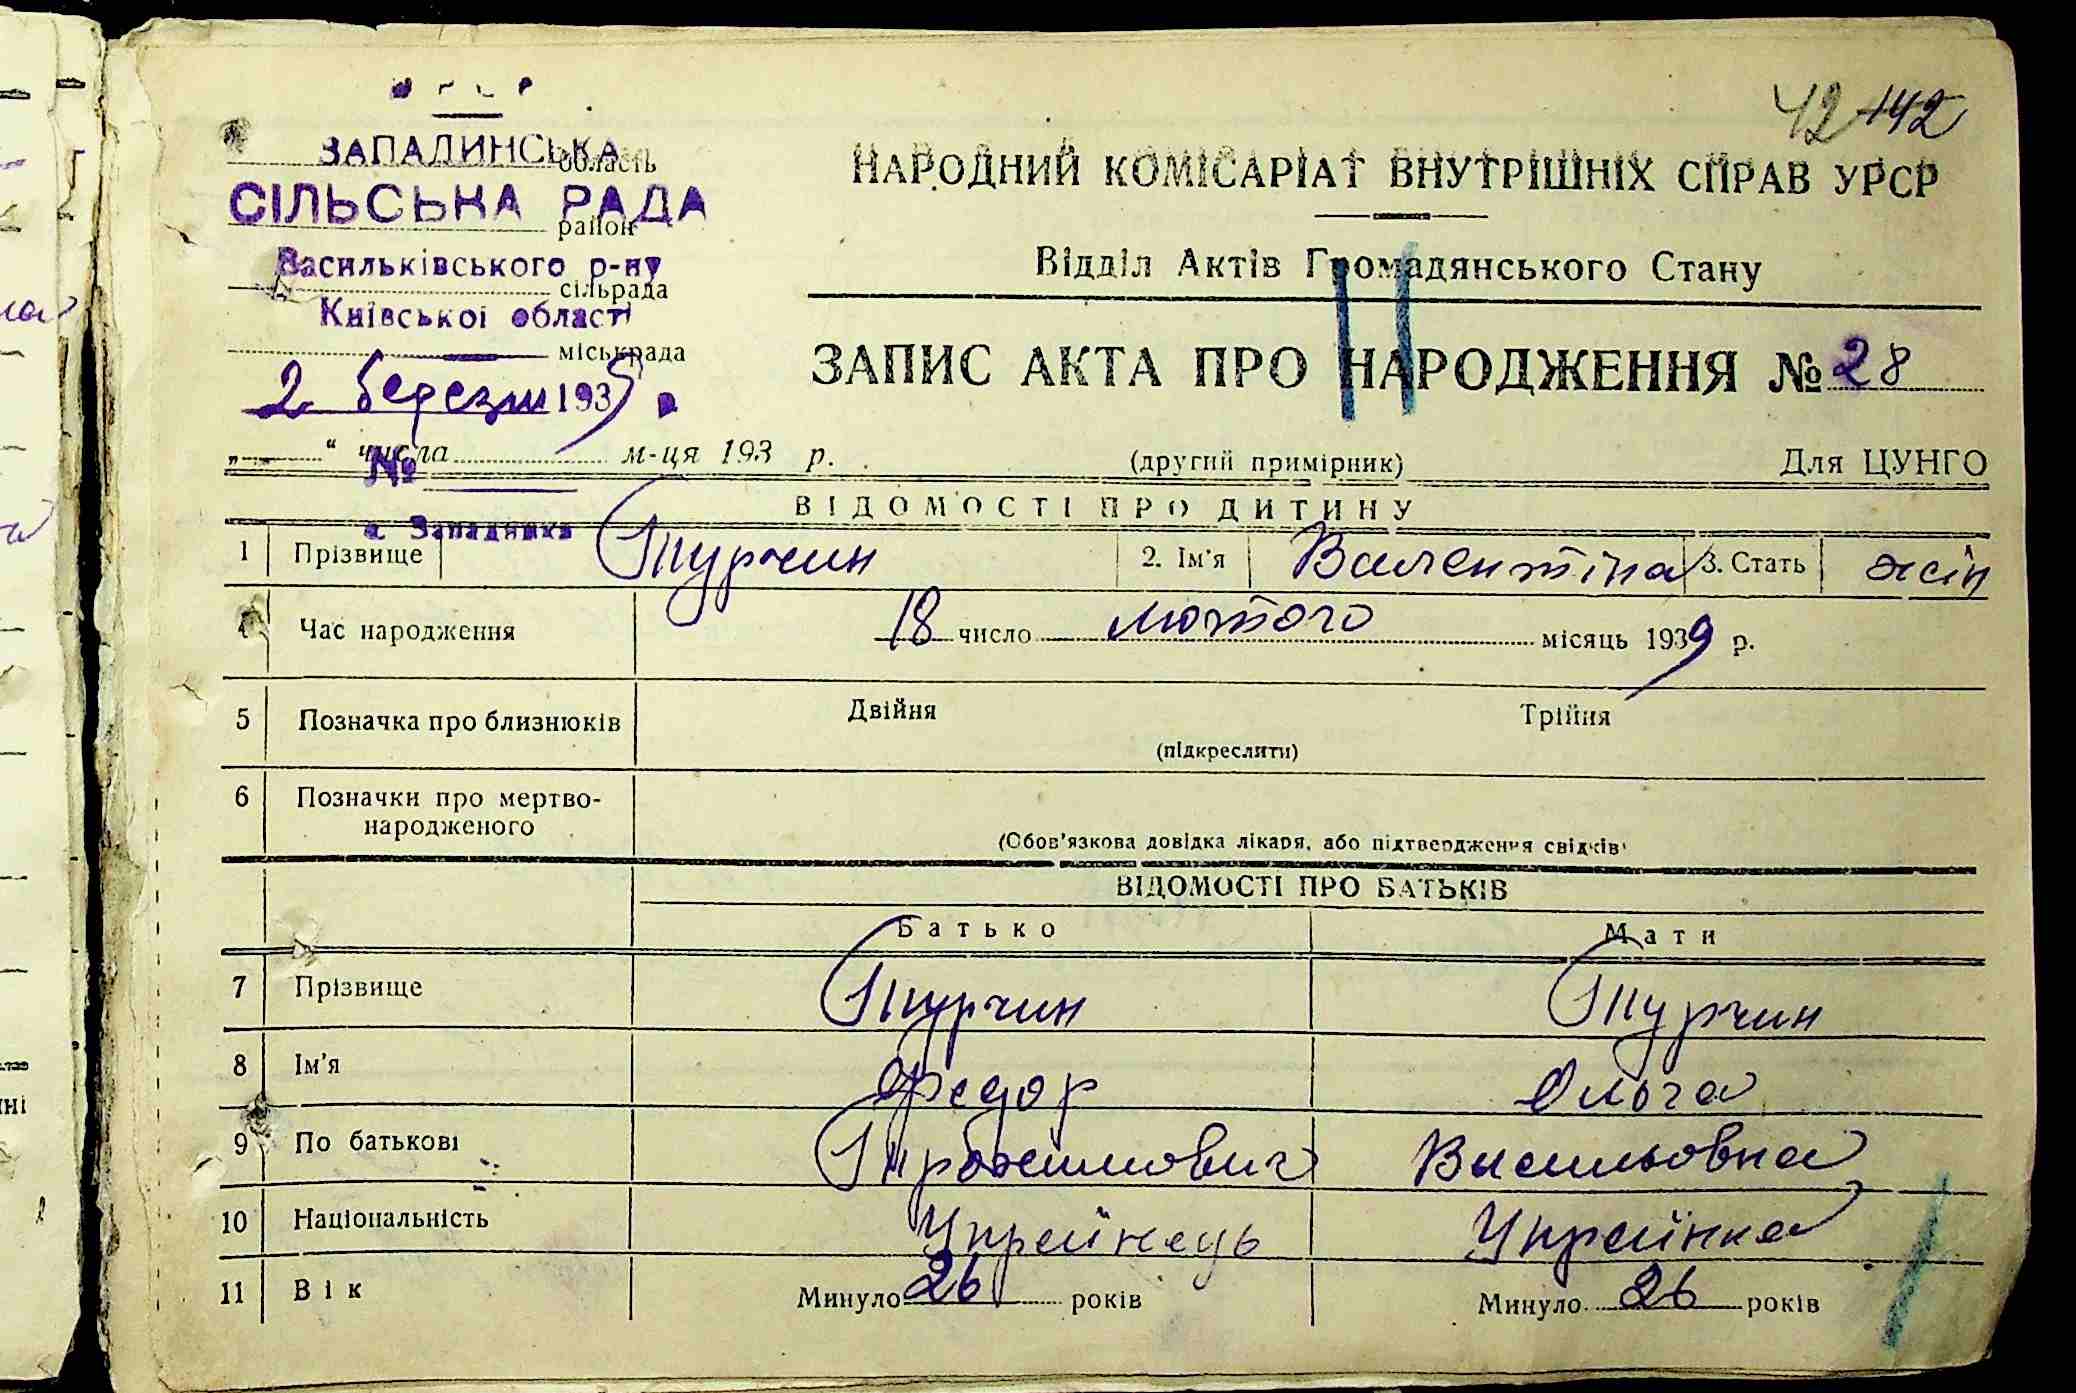 42 142
ЗАПАДИНСЬКА
область
СІЛЬСЬКА РАДА
район
Васильківського р-ну
сільрада
Київської області
міськрада
2 березня 1939
„ “ числа м-ця 193 р.
№
с. Западинка
НАРОДНИЙ КОМІСАРІАТ ВНУТРІШНІХ СПРАВ УРСР
Відділ Актів Громадянського Стану
ЗАПИС АКТА ПРО НАРОДЖЕННЯ № 28
(другий примірник) Для ЦУНГО
ВІДОМОСТІ ПРО ДИТИНУ
1 Прізвище Турчин 2. Ім'я Валентіна 3. Стать жін
4 Час народження 18 число лютого місяць 1939 р.
5 Позначка про близнюків Двійня Трійня
(підкреслити)
6 Позначки про мертво-
народженого
(Обов'язкова довідка лікаря, або підтвердження свідків)
ВІДОМОСТІ ПРО БАТЬКІВ
Батько Мати
7 Прізвище Турчин Турчин
8 Ім'я Федор Ольга
9 По батькові Васильовна
10 Національність Українець Українка
11 Вік Минуло 26 років Минуло 26 років